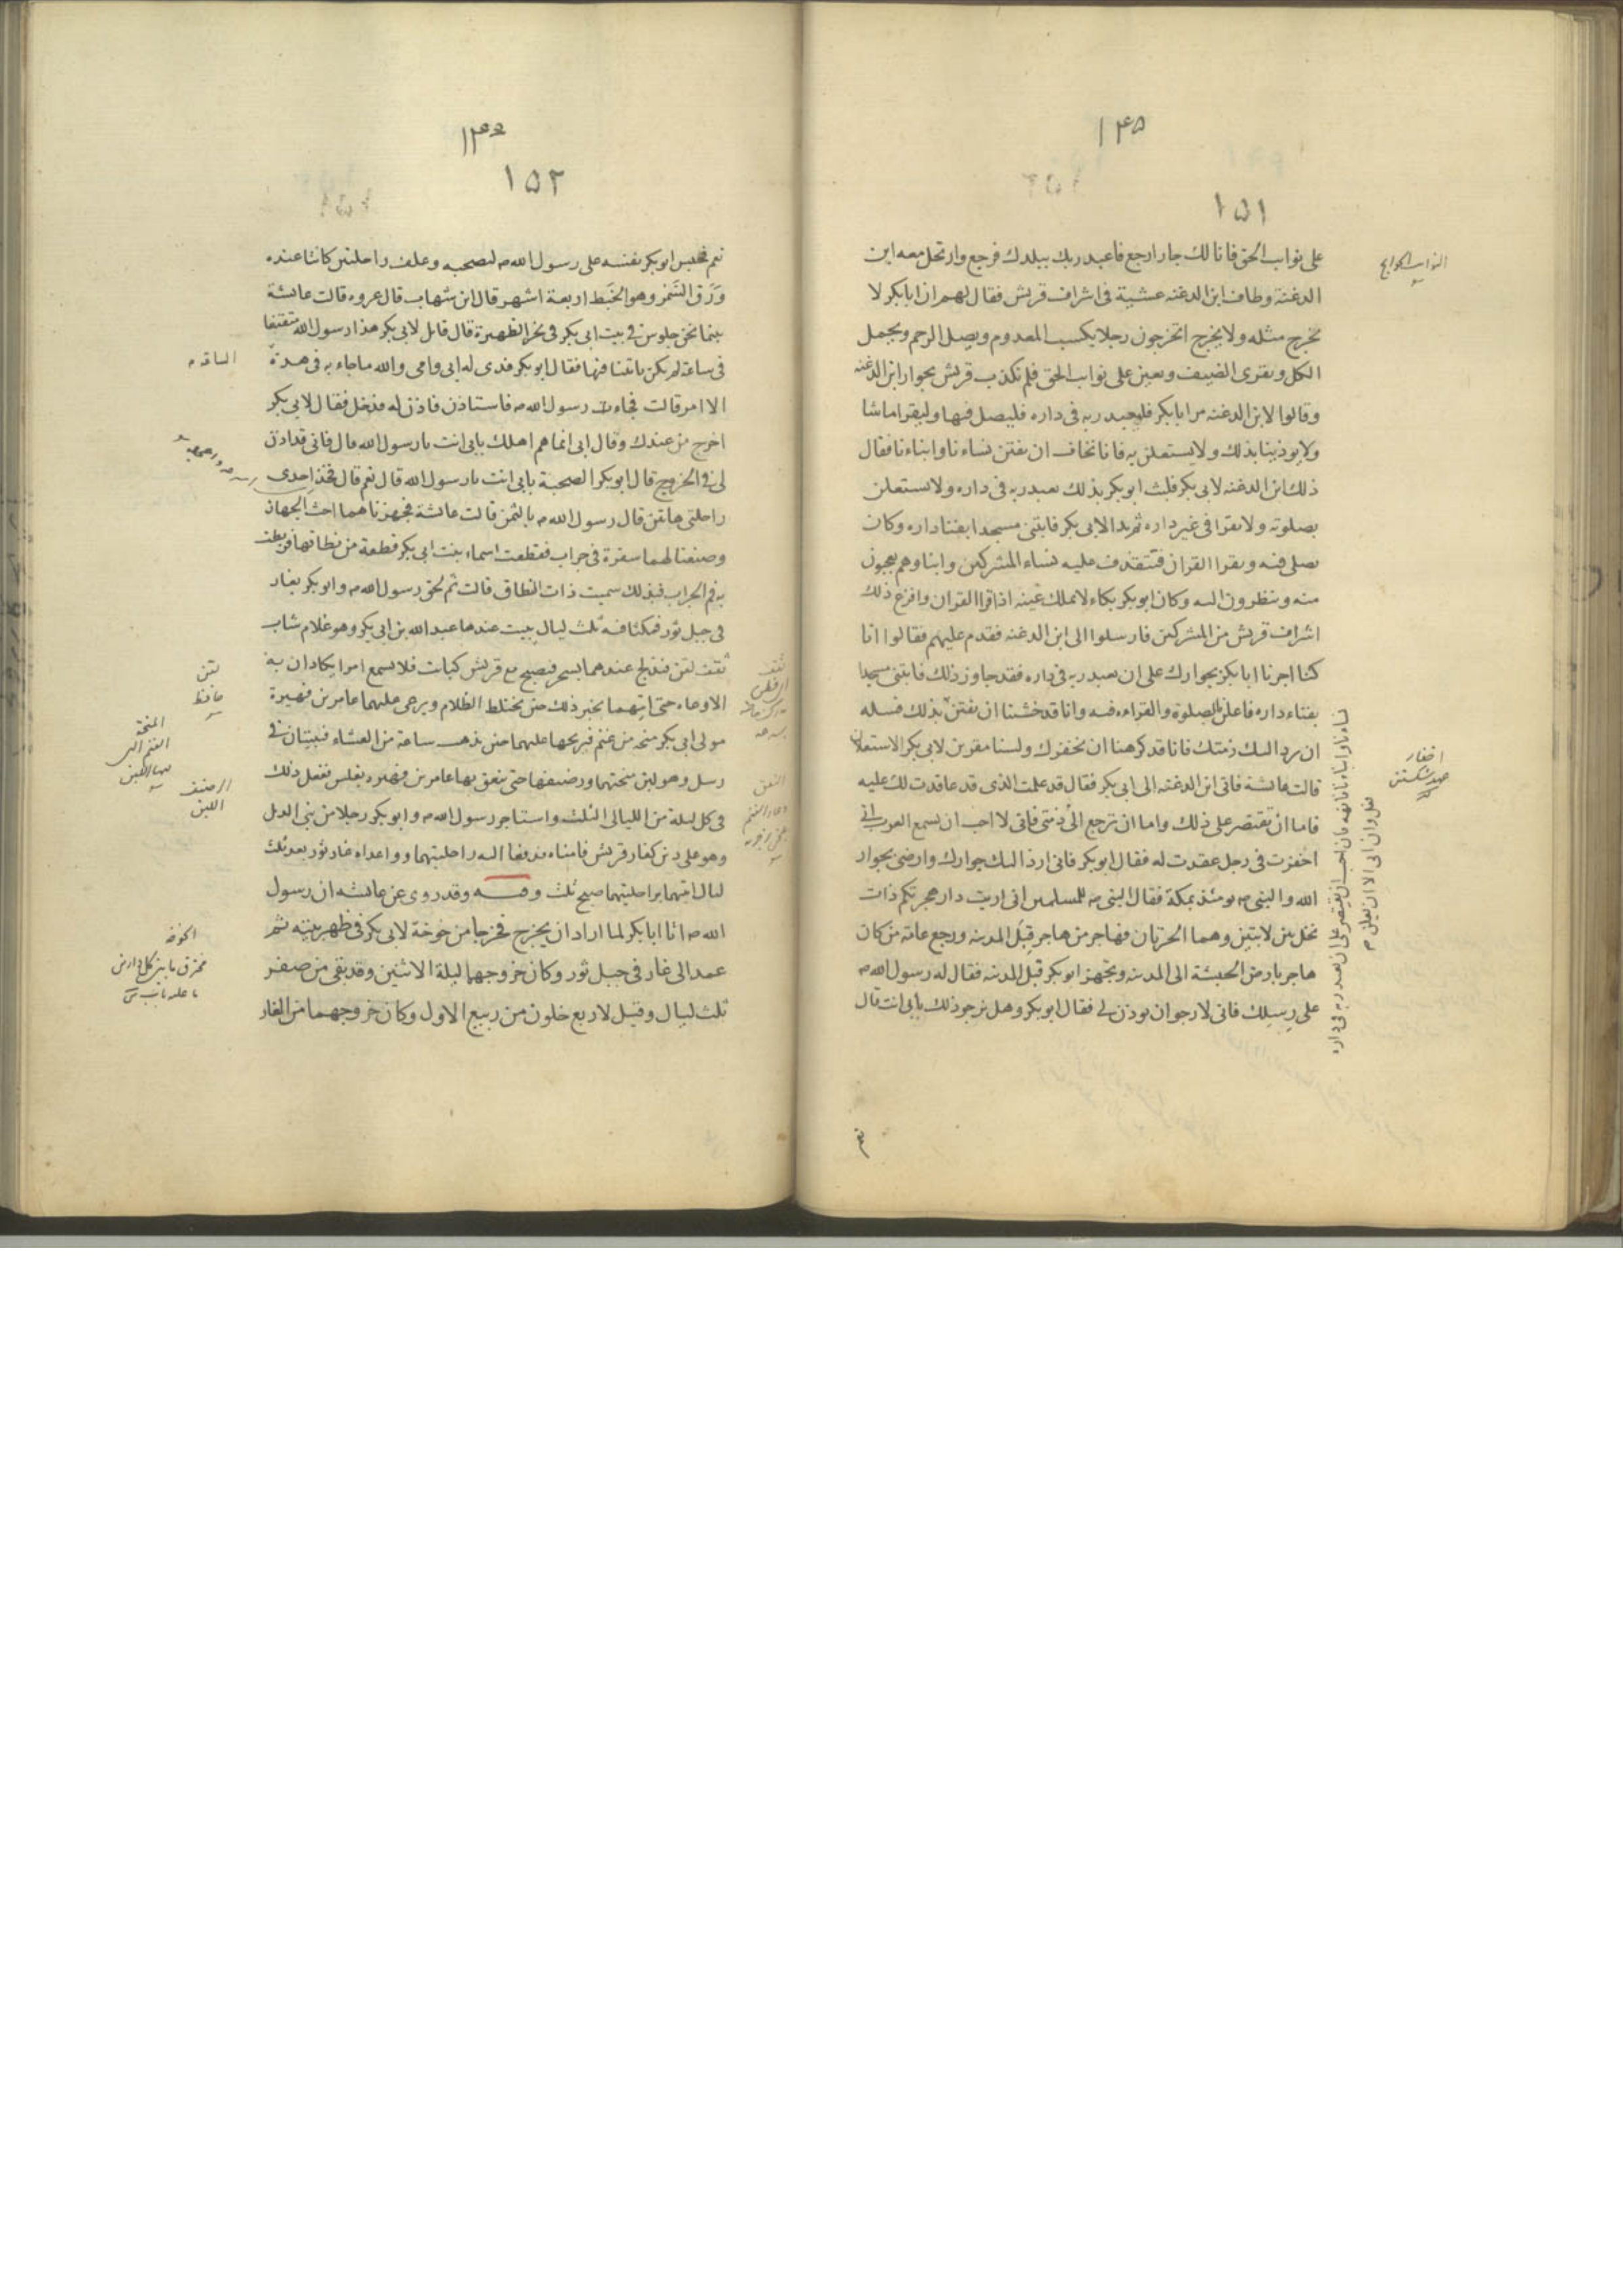 ١٤٥
١٥١
على نواب الحق فانا لك جار ارجع فاعبد ربك ببلدك فرجع وارتحل معه ابن
الدغنة وطاف ابن الدغنه عشية فى اشراف قريش فقال لهم ان ابابكر لا
يخرج مثله ولا يخرج اتخرجون رجلا يكسب المعدوم ويصل الرحم ويحمل
الكل ويقرى الضيف ويعين على نواب الحق فلم تكذب قريش بجوار ابن الدغنه
وقالوا لابن الدغنه مر ابابكر فليعبد ربه فى داره فليصل فيها وليقرا ما شا
ولا يوذينا بذلك ولا يستعلن به فانا نخاف ان يفتن نساءنا وابناءنا فقال
ذلك ابن الدغنه لابى بكر فلبث ابوبكر بذلك يعبد ربه فى داره ولا يستعلن
بصلوته ولا يقرا فى غير داره ثم بدا لابى بكر فابتنى مسجدا بفنا داره وكان
يصلى فيه ويقرا القران فتتقذف عليه نساء المشركين وابناوهم يعجبون
منه وينظرون اليه وكان ابوبكر بكاء لا يملك عينه اذا قرا القران وافزع ذلك
اشراف قريش من المشركين فارسلوا الى ابن الدغنه فقدم عليهم فقالوا انا
كنا اجرنا ابابكر بجوارك على ان يعبد ربه فى داره فقد جاوز ذلك فابتنى مسجدا
بفناء داره فاعلن بالصلوة والقراءه فيه وانا قد خشنا ان يفتن بذلك فسله
ان يرد اليك ذمتك فانا قد كرهنا ان نخفرك ولسنا مقرين لابى بكر الاستعلان
قالت عائشة فاتى ابن الدغنه الى ابى بكر فقال قد علمت الذى قد عاقدت لك عليه
فاما ان تقتصر على ذلك واما ان ترجع الى ذمتى فانى لا احب ان يسمع العرب انى
اخفرت فى رجل عقدت له فقال ابوبكر فانى ارد اليك جوارك وارضى بجوار
الله والنبى م يومئذ بمكة فقال النبى م للمسلمين انى اريت دار هجرتكم ذات
نخل بين لابتين وهما الحرتان فهاجر من هاجر قبل المدينه ورجع عامه من كان
هاجر بارض الحبشة الى المدينه وتجهز ابوبكر قبل المدينه فقال له رسول الله م
على رسلك فانى لارجوان يوذن لى فقال ابوبكر وهل نرجو ذلك بابى انت قال
نعم
النواب الحوايج
نساءنا وابناءنا فانهه فان احب ان يقتصر على ان يعبد ربه فى داره
فعل وان ابى الا ان يعلن م
اخفار
عهد شكستن
١٥٢
نعم فحبس ابوبكر نفسه على رسول الله م ليصحبه وعلف راحلتين كانتا عنده
ورق السمر وهو الخبط اربعة اشهر قال ابن شهاب قال عروه قالت عائشة
بينما نحن جلوس فى بيت ابى بكر فى نحر الظهيرة قال قائل لابى بكر هذا رسول الله متقنعا
فى ساعة لم يكن ياتينا فيها فقال ابوبكر فدى له ابى وامى والله ما جاء به فى هذه
الا امر قالت فجاء رسول الله م فاستاذن فاذن له فدخل فقال لابى بكر
اخرج من عندك وقال ابى انما هم اهلك بابى انت يا رسول الله قال فانى قد اذن
لى فى الخروج قال ابوبكر الصحبة بابى انت يا رسول الله قال نعم قال فخذ احدى
راحلتى هاتين قال رسول الله م بالثمن قالت عائشة فجهزناهما احث الجهاز
وصنعنا لهما سفرة فى جراب فقطعت اسماء بنت ابى بكر قطعة من نطاقها فربطت
به فم الجراب فبذلك سميت ذات النطاق قالت ثم لحق رسول الله م وابوبكر بغار
فى جبل ثور فمكثا فيه ثلث ليال يبيت عندهما عبد الله بن ابى بكر وهو غلام شاب
ثقف لقن فيدلج عندهما بسحر فيصبح مع قريش كبائت فلا يسمع امرا يكادان به
الا وعاه حتى اتيهما بخبر ذلك حين يختلط الظلام ويرعى عليهما عامر بن فهيرة
مولى ابى بكر منحه من غنم فيريحها عليهما حين يذهب ساعة من العشاء فيبيتان فى
رسل وهو لبن منحتهما ورضيفها حتى ينعق بها عامر بن فهيره بغلس يفعل ذلك
فى كل ليلة من الليالى الثلث واستاجر رسول الله م وابوبكر رجلا من بنى الديل
وهو على دين كفار قريش فامناه فدفعا اليه راحلتيهما وواعداه غار ثور بعد ثلث
ليال اتيهما براحلتيهما صبح ثلث وفيه وقد روى عن عائشه ان رسول
الله م اتا ابابكر لما اراد ان يخرج فخرجا من خوخة لابى بكر فى ظهر بيته ثم
عمد الى غار فى جبل ثور وكان خروجهما ليلة الاثنين وقد بقى من صفر
ثلث ليال وقيل لاربع خلون من ربيع الاول وكان خروجهما من الغار
لقن
حافظ
المنحة
الرضيف
اللبن
الخوخه